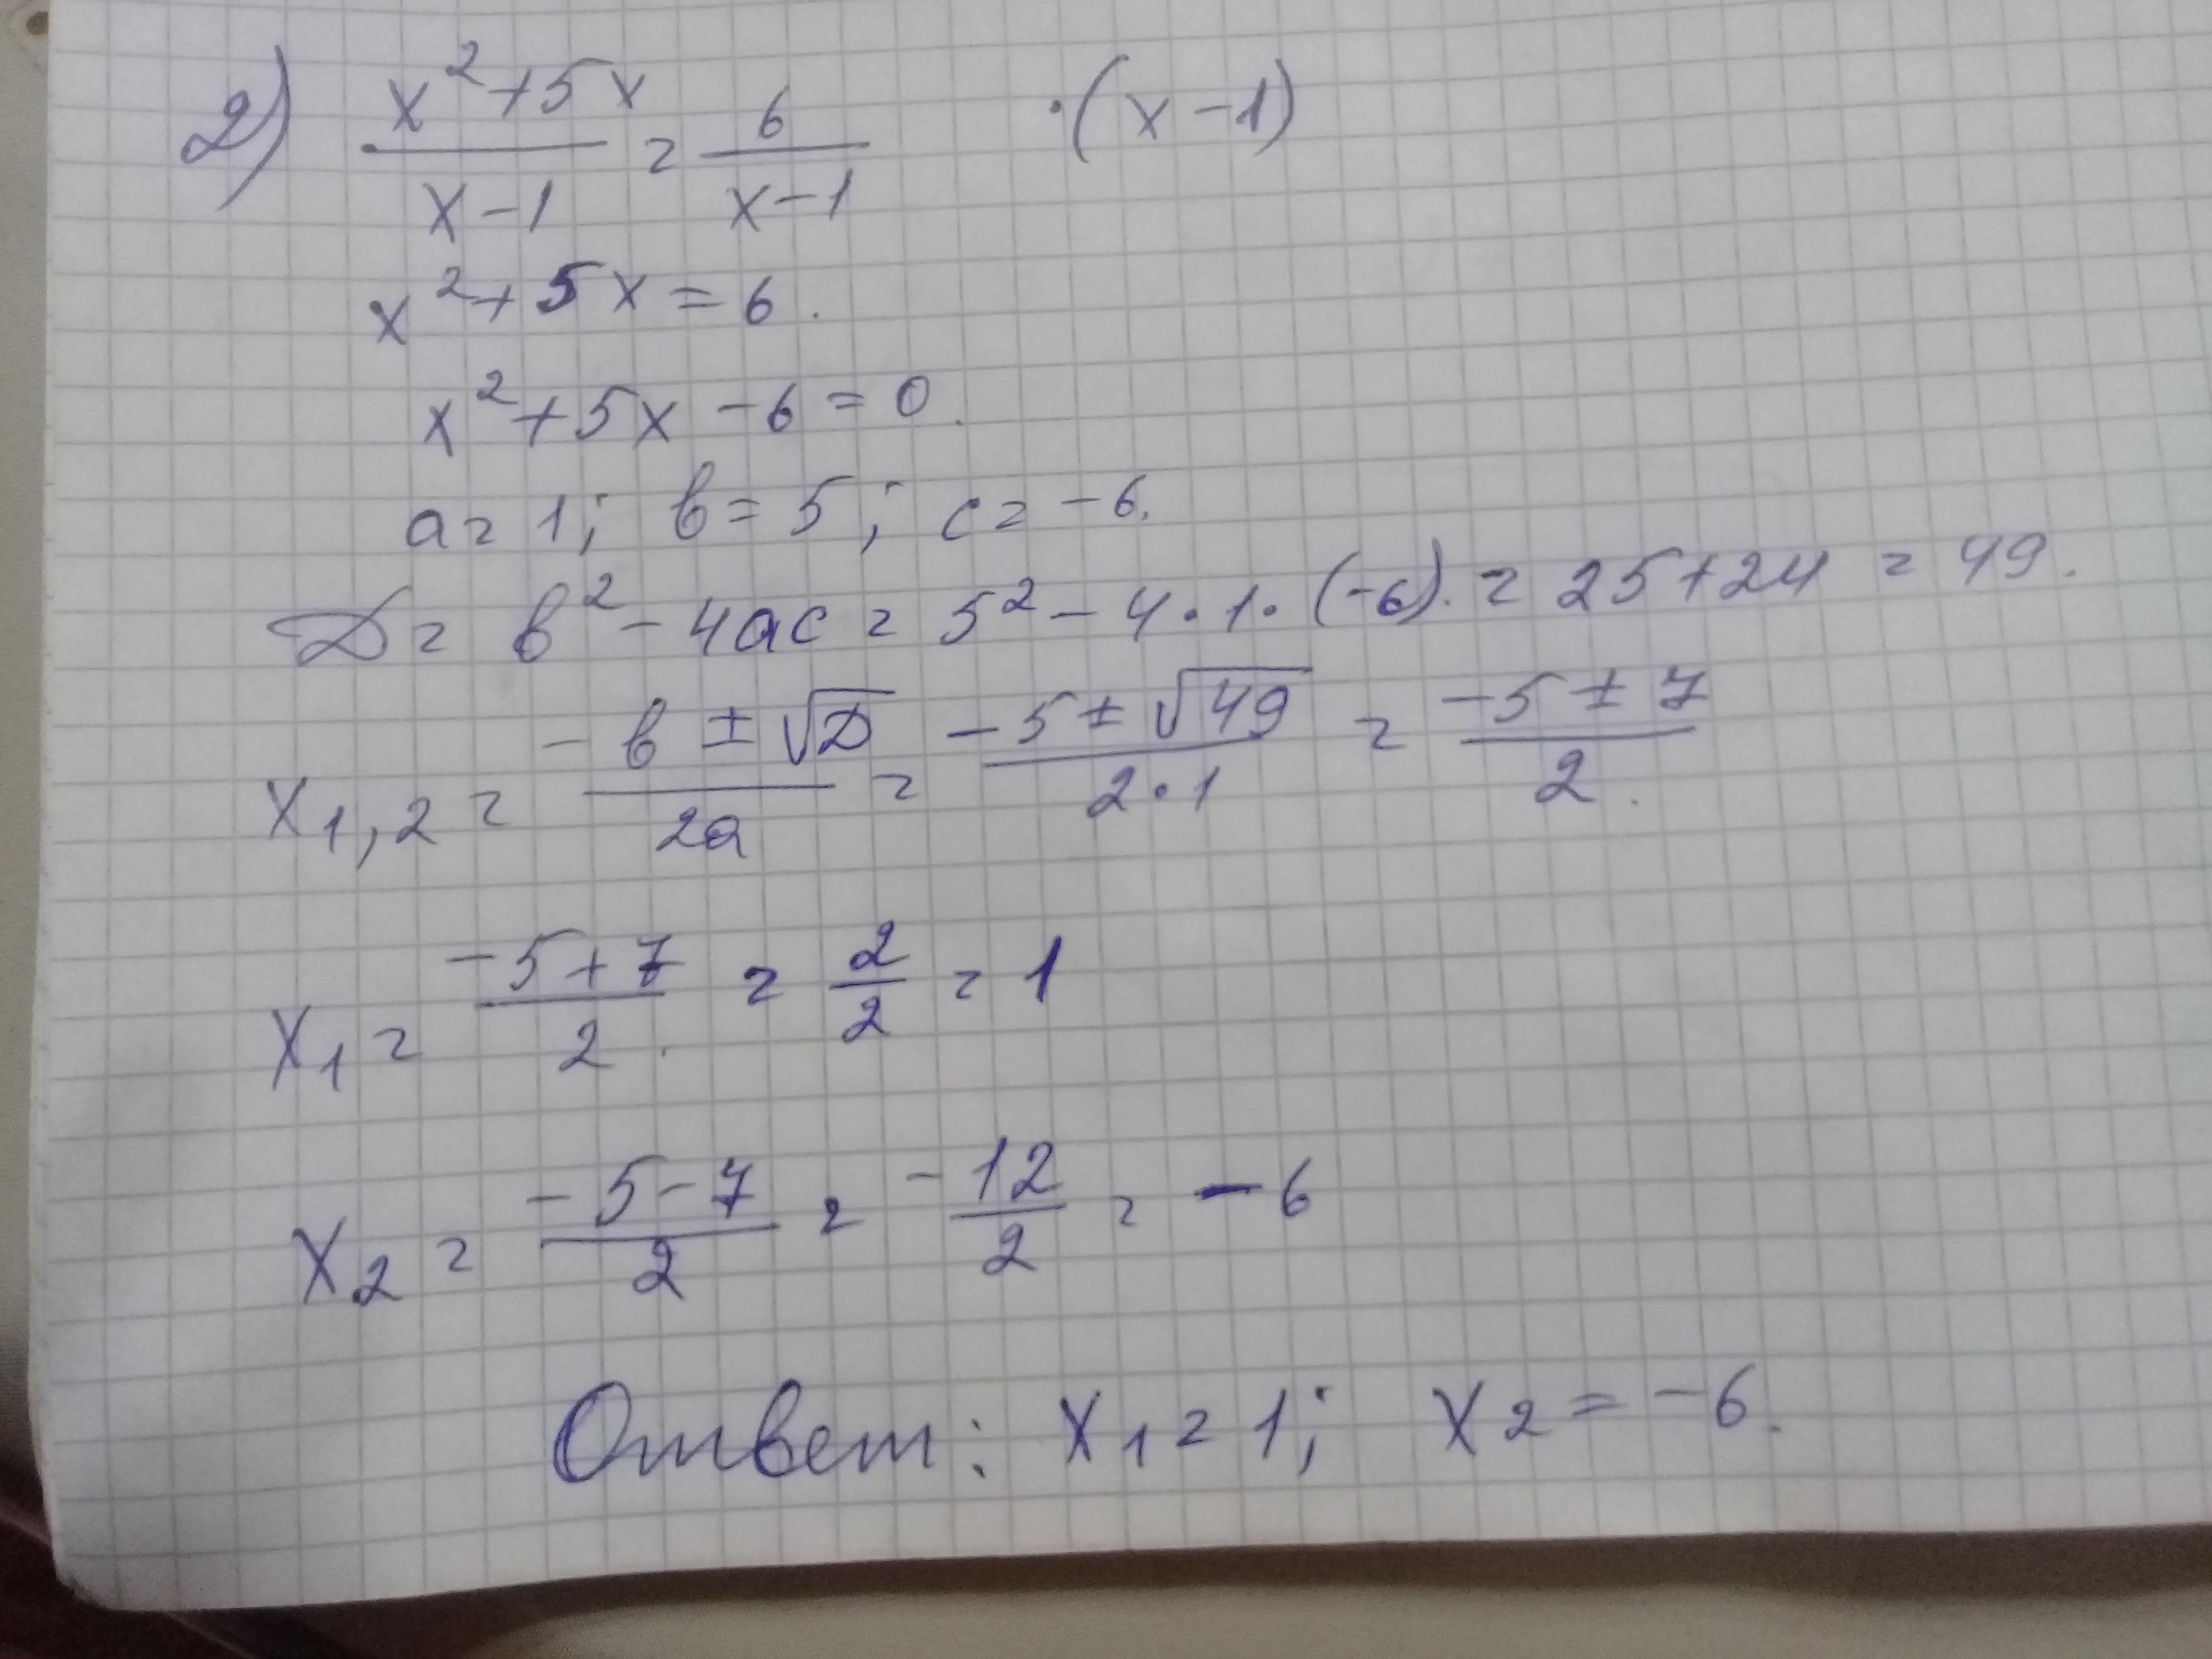 2) (x² + 5x)/(x - 1) = 6/(x - 1) · (x - 1)
x² + 5x = 6.
x² + 5x - 6 = 0.
a = 1; b = 5; c = -6.
D = b² - 4ac = 5² - 4 · 1 · (-6) = 25 + 24 = 49.
x₁,₂ = (-b ± √D)/(2a) = (-5 ± √49)/(2 · 1) = (-5 ± 7)/2.
x₁ = (-5 + 7)/2 = 2/2 = 1
x₂ = (-5 - 7)/2 = -12/2 = -6
Ответ: x₁ = 1; x₂ = -6.